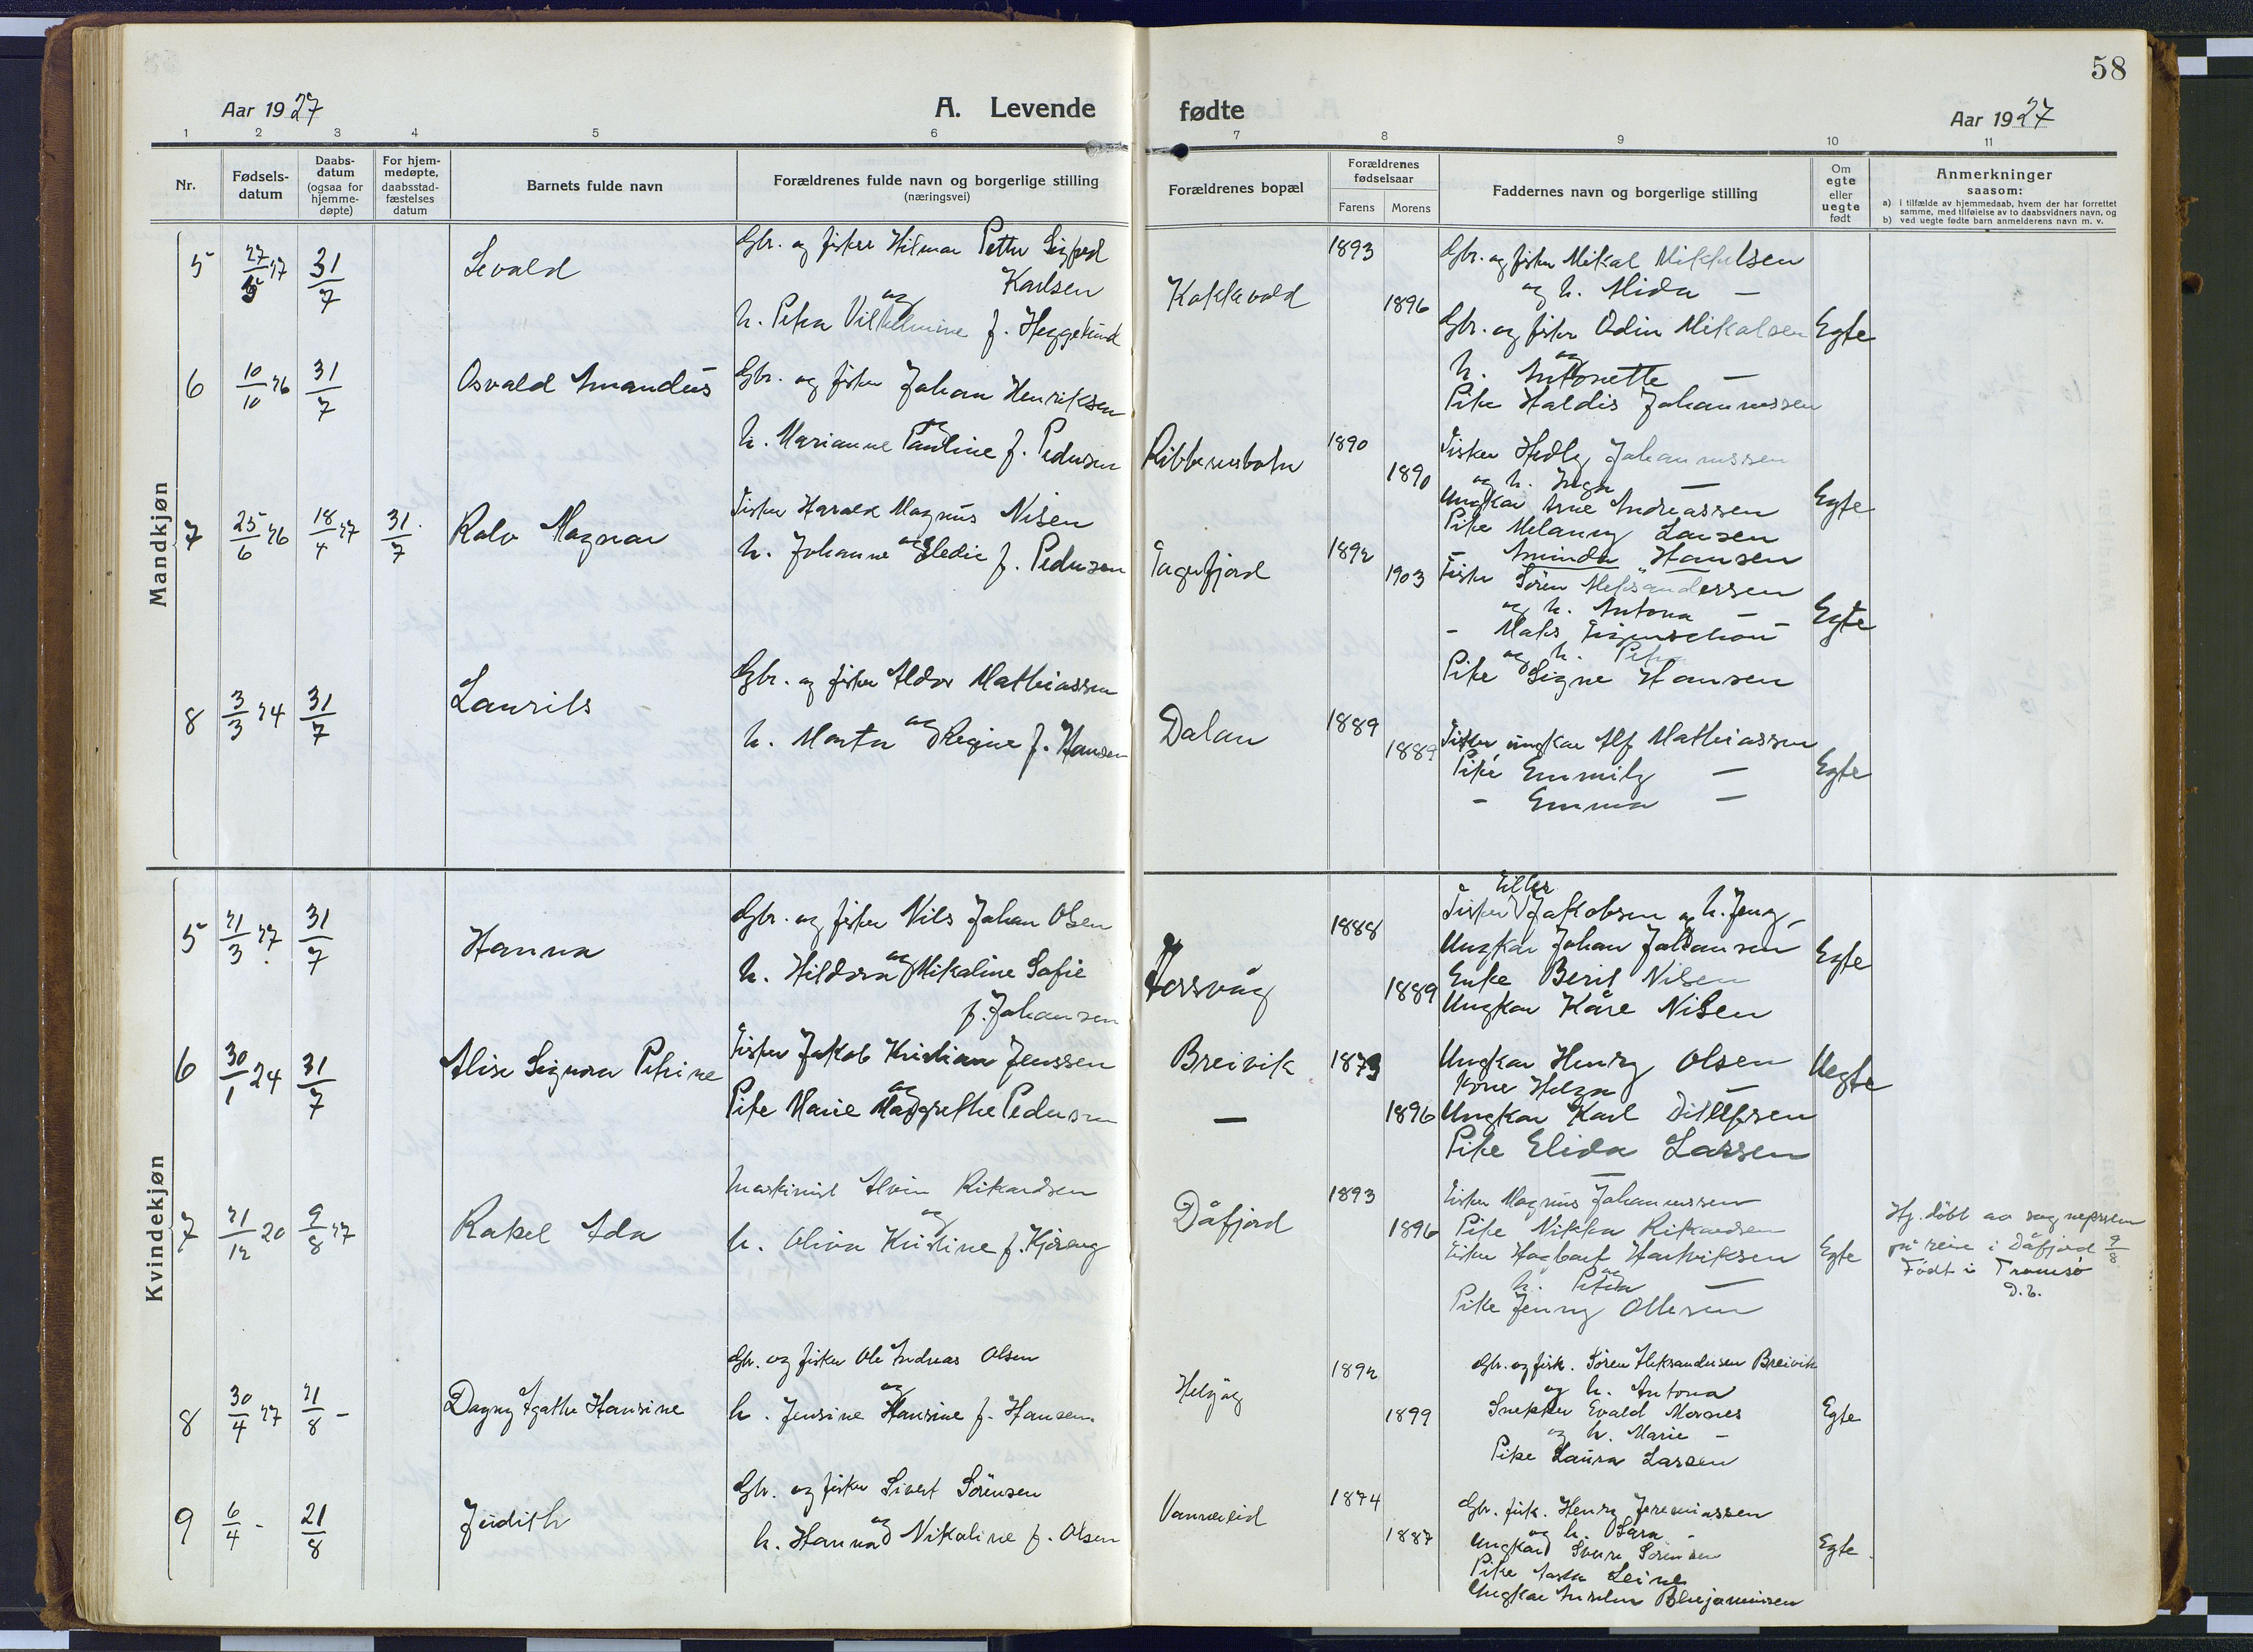 58
Aar 1927
A. Levende fødte
Aar 1927
1 2 3 4 5 6 7 8 9 10 11
Nr.
Fødsels-
datum
Daabs-
datum
(ogsaa for
hjemme-
døpte)
For hjem-
medøpte,
daabsstad-
fæstelses
datum
Barnets fulde navn
Forældrenes fulde navn og borgerlige stilling
(næringsvei)
Forældrenes bopæl
Forældrenes
fødselsaar
Farens Morens
Faddernes navn og borgerlige stilling
Om
egte
eller
uegte
født
Anmerkninger
saasom:
a) i tilfælde av hjemmedaab, hvem der har forrettet
samme, med tilføielse av to daabsvidners navn, og
b) ved uegte fødte barn anmelderens navn m. v.
Mandkjøn
5 27/5 27 31/7
Sevald
Gbr. og fisker Hilmar Petter Sigfred
Karlsen
og
h. Petra Vilhelmine f. Heggelund
Kokkvold
1893
1896
Gbr. og fisker Mikal Mikkelsen
og h. Alida —
Gbr. og fisker Odin Mikalsen
og
h. Antonette —
Pike Haldis Johannessen
Egte
6 10/10 26 31/7
Osvald Amandus
Gbr. og fisker Johan Henriksen
og
h. Marianne Pauline f. Pedersen
Ribbenesbotn
1890
1890
Fisker Hedly Johannessen
og h. Inga —
Ungkar Arne Andreassen
Pike Melanny Larsen
— Aminda Hansen
Egte
7 25/6 26 18/4 27 31/7
Ralv Magnar
Fisker Harald Magnus Nilsen
og
h. Johanne Eledie f. Pedersen
1892
1903
Fisker Sören Aleksandersen
og h. Antona —
- Maks Figenschou
og h. Petra
Pike Signe Hansen
Egte
8 3/3 24 31/7
Laurits
Gbr. og fisker Aldor Mathiassen
og
h. Marta Regine f. Hansen
Dalan
1889
1889
Fisker, ungkar Alf Mathiassen
Pike Emmily —
- Emma —
Egte
Kvindekjøn
5 21/3 27 31/7
Hanna
Gbr. og fisker Nils Johan Olsen
og
h. Hildora Mikaline Sofie
f. Johansen
1888
1889
Fisker Jakobsen og h. Jenny -
Ungkar Johan Johansen
Enke Berit Nilsen
Ungkar Kåre Nilsen
Egte
6 30/1 24 31/7
Alise Signora Petrine
Fisker Jakob Kristian Jenssen
og
Pike Marie Margrethe Pedersen
Breivik
—
1873
1896
Ungkar Henry Olsen
Kone Helga —
Ungkar Karl Ditlefsen
Pike Elida Larsen
Uegte
7 21/12 20 9/8 27
Rakel Ada
Maskinist Alvin Rikardsen
og
h. Oliva Kristine f. Kjöreng
Dåfjord
1893
1896
Fisker Magnus Johannessen
Pike Nikka Rikardsen
Fisker Hagbart Hartviksen
og
h. Petra —
Pike Jenny Ottesen
Egte
Hj. döbt av sognepresten
på reise i Dåfjord 9/8
Födt i Tromsö
D. b.
8 30/4 27 21/8 -
Dagny Agathe Hansine
Gbr. og fisker Ole Andreas Olsen
og
h. Jensine Hansine f. Hansen
1892
1899
Gbr. og fisk. Sören Aleksandersen Breivik
og h. Antona
Snekker Evald Mornes
og h. Marie -
Pike Laura Larsen
Egte
9 6/4 - 21/8
Judith
Gbr. og fisker Sivert Sörensen
og
h. Hanna Nikoline f. Olsen
Vannereid
1874
1887
Gbr. fisk. Henry Jeremiassen
og h. Sara -
Ungkar Sverre Sörensen
Pike
Ungkar Anselm Benjaminsen
Egte